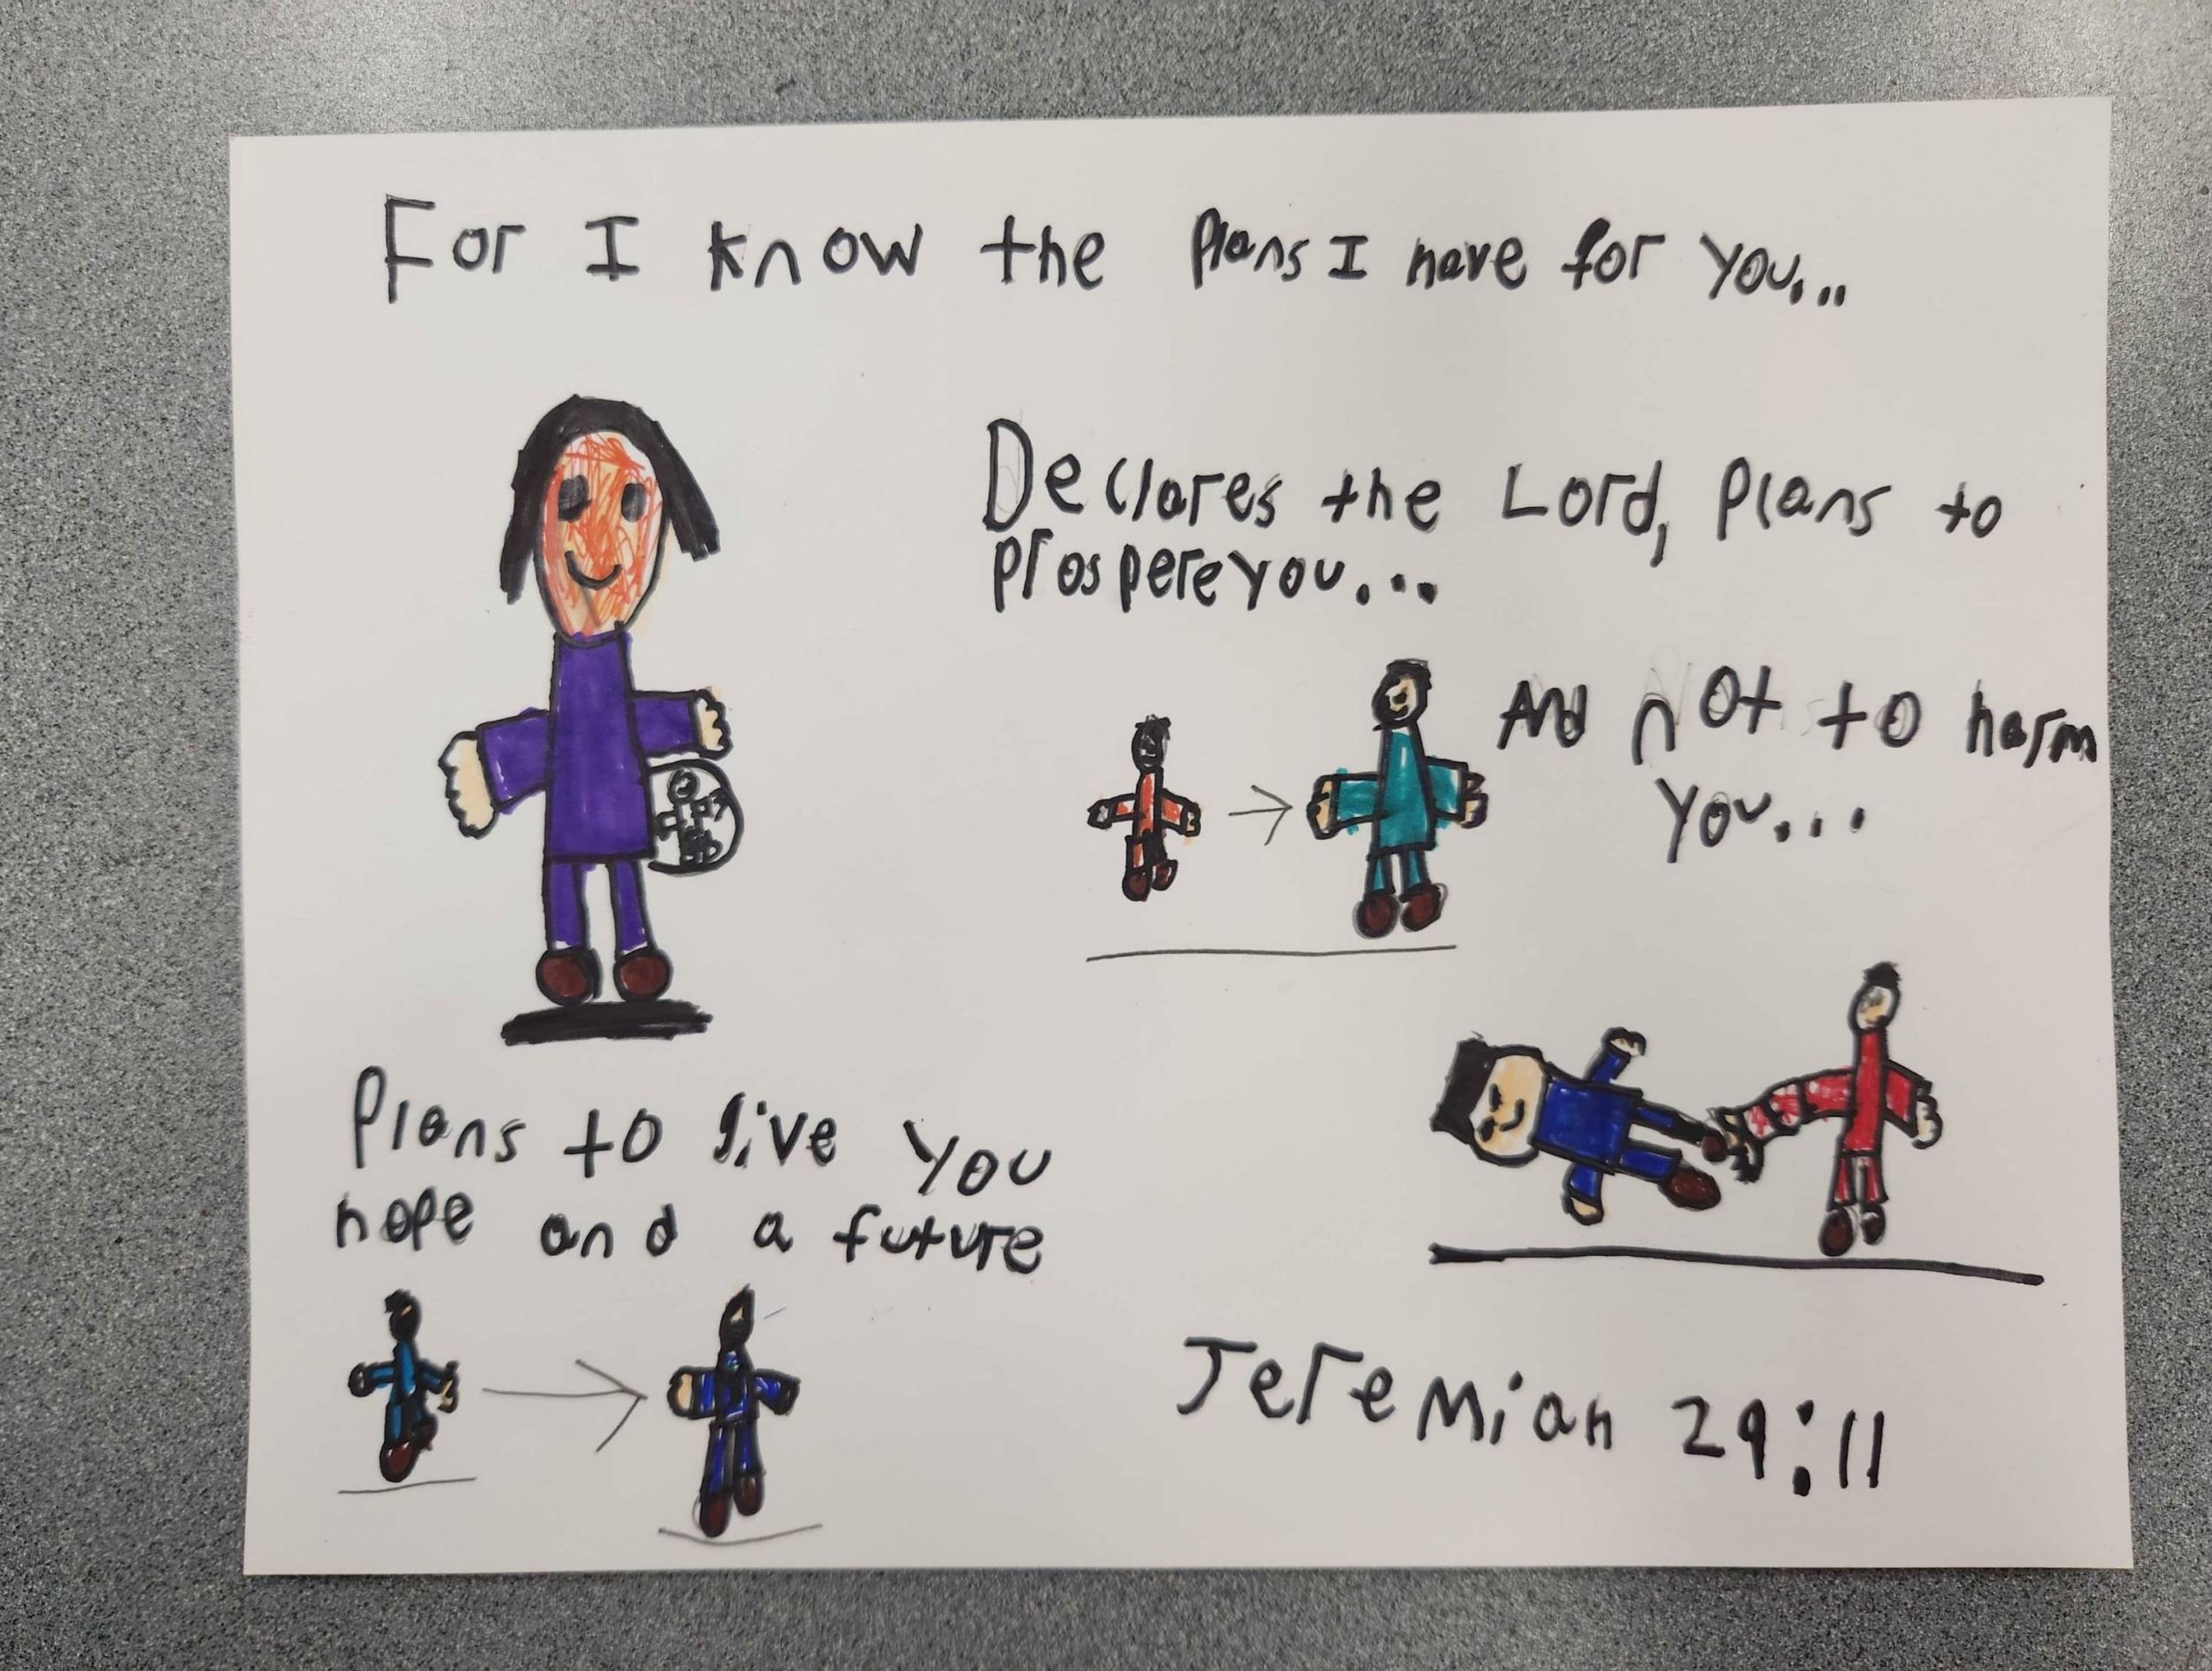 For I know the Plans I have for you...
Declares the Lord, Plans to
prospere you...
And not to harm
you...
Plans to give you
hope and a future
Jeremiah 29:11